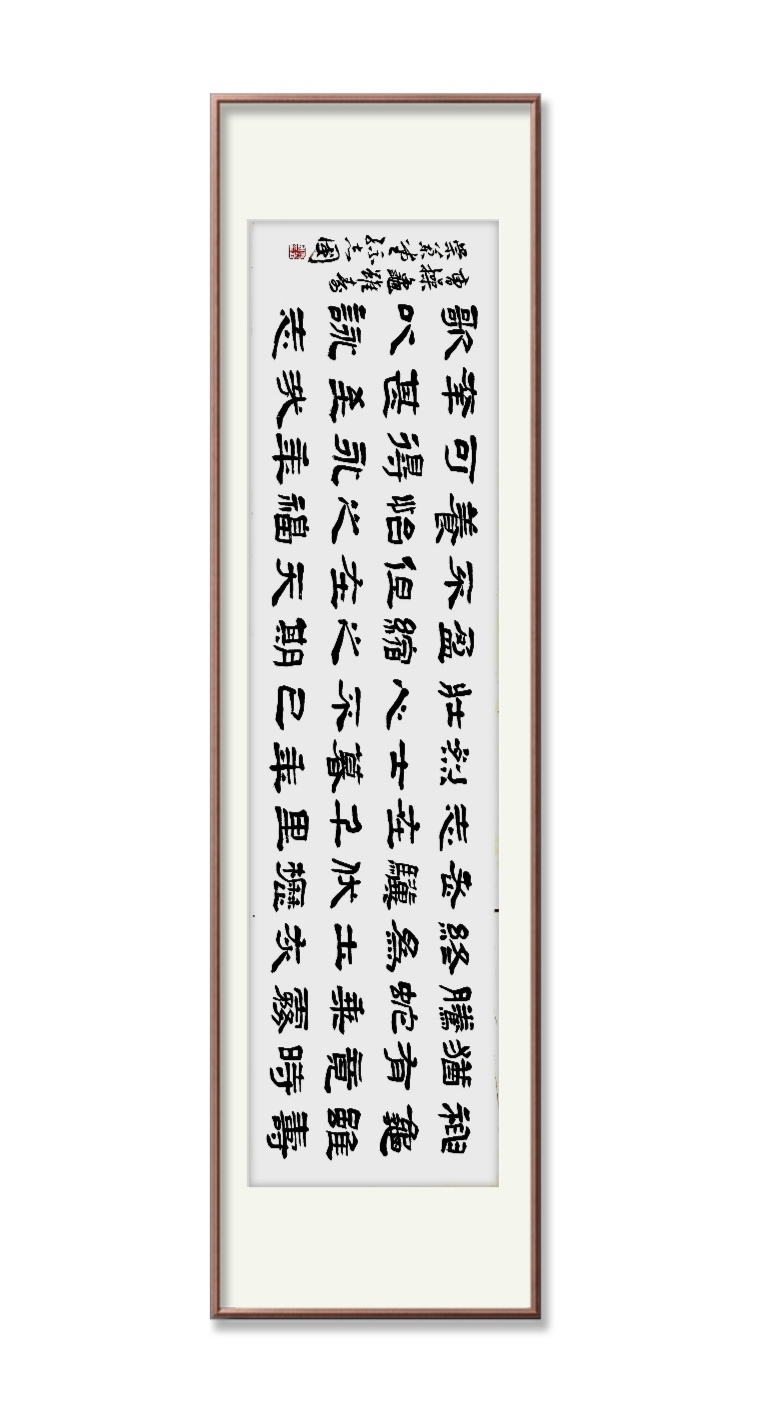 神龜雖壽
猶有竟時
騰蛇乘霧
終為土灰
老驥伏櫪
志在千里
烈士暮年
壯心不已
盈縮之期
不但在天
養怡之福
可得永年
幸甚至哉
歌以詠志
曹操龜雖壽
志國